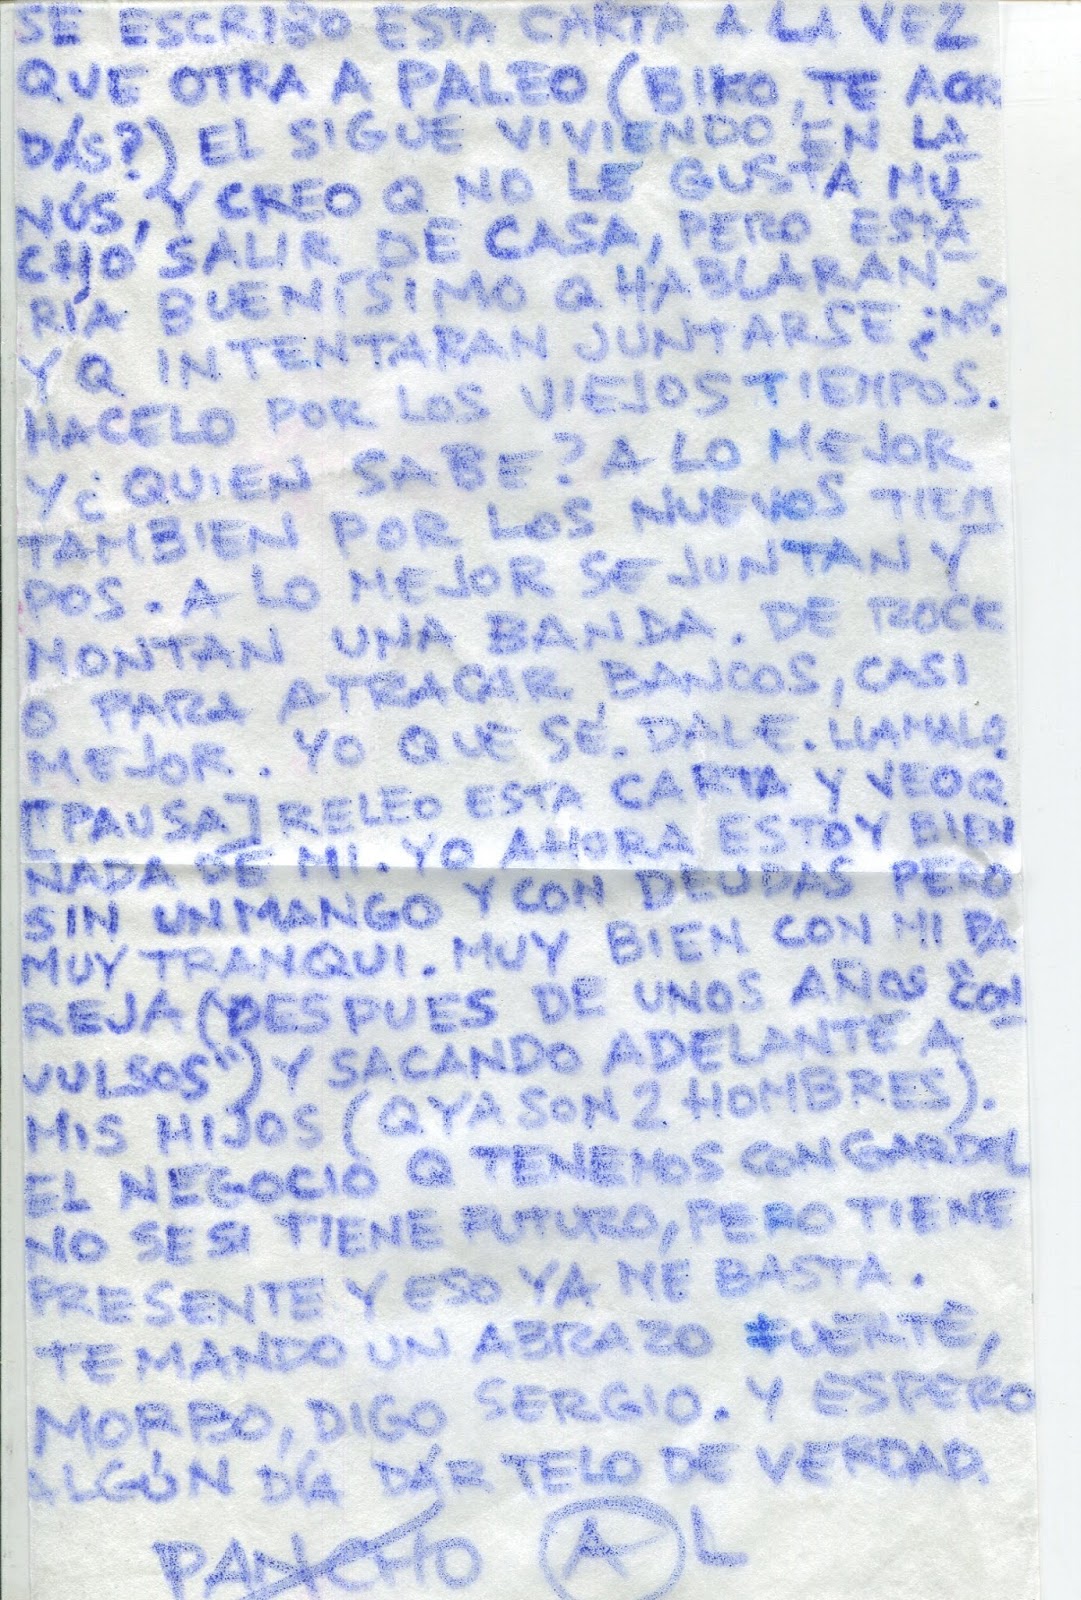 SE ESCRIBO ESTA CARTA A LA VEZ
QUE OTRA A PALEO (BIKO, TE ACOR
DÁS?) EL SIGUE VIVIENDO EN LA
NÚS, Y CREO Q NO LE GUSTA MU
CHO SALIR DE CASA, PERO ESTA
RÍA BUENÍSIMO Q HABLARAN
Y Q INTENTARAN JUNTARSE ¿NO?
HACELO POR LOS VIEJOS TIEMPOS.
Y ¿QUIEN SABE? A LO MEJOR
TAMBIEN POR LOS NUEVOS TIEM
POS. A LO MEJOR SE JUNTAN Y
MONTAN UNA BANDA. DE ROCK
O PARA ATRACAR BANCOS, CASI
MEJOR. YO QUE SÉ. DALE. LLAMALO.
[PAUSA] RELEO ESTA CARTA Y VEO Q
NADA DE MI. YO AHORA ESTOY BIEN
SIN UN MANGO Y CON DEUDAS PERO
MUY TRANQUI. MUY BIEN CON MI PA
REJA (DESPUES DE UNOS AÑOS "CON
VULSOS") Y SACANDO ADELANTE A
MIS HIJOS (Q YA SON 2 HOMBRES).
EL NEGOCIO Q TENEMOS CON GARDEL
NO SE SI TIENE FUTURO, PERO TIENE
PRESENTE Y ESO YA ME BASTA.
TE MANDO UN ABRAZO FUERTE,
MORBO, DIGO SERGIO. Y ESPERO
ALGÚN DÍA DÁRTELO DE VERDAD.
PANCHO A L